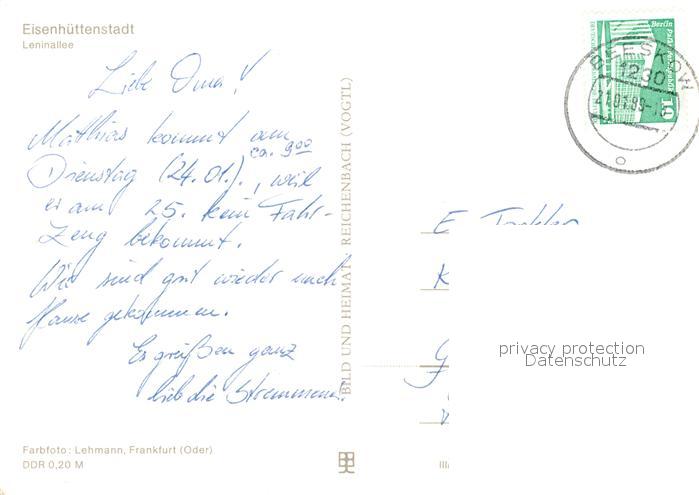 Eisenhüttenstadt
Leninallee
Liebe Oma!
Matthias kommt am
ca. 9⁰⁰
Dienstag (24.01.), weil
er am 25. kein Fahr-
zeug bekommt.
Wir sind gut wieder nach
Hause gekommen.
Es grüßen ganz
lieb die
Farbfoto: Lehmann, Frankfurt (Oder)
DDR 0,20 M
BILD UND HEIMAT REICHENBACH (VOGTL)
Berlin
10
BEESKOW
1230
21.01.89
E
K
privacy protection
Datenschutz